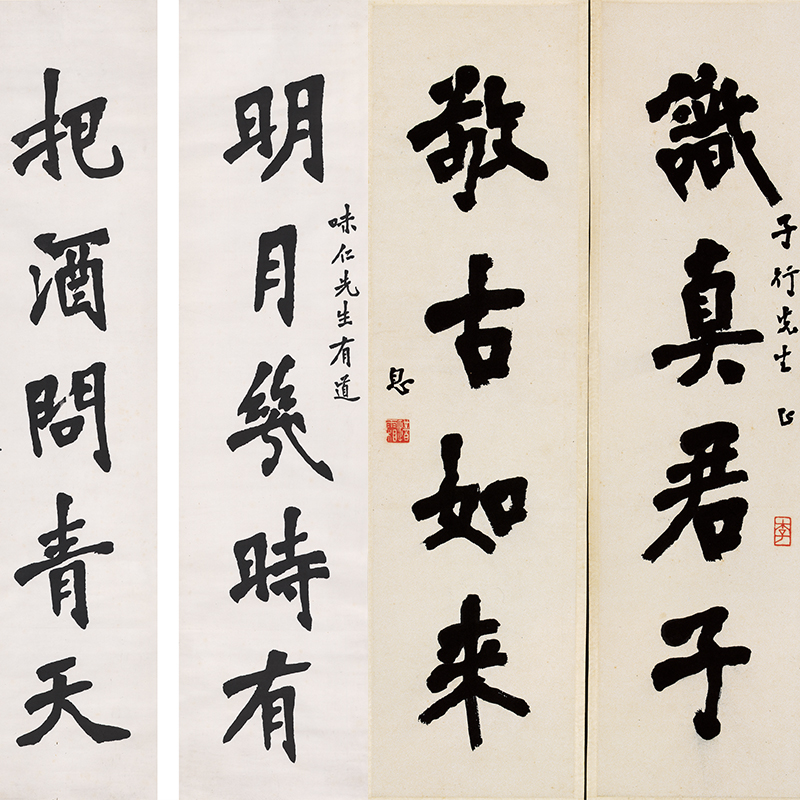 子行先生正
李
識真君子
敬古如來
味仁先生有道
明月幾時有
把酒問青天